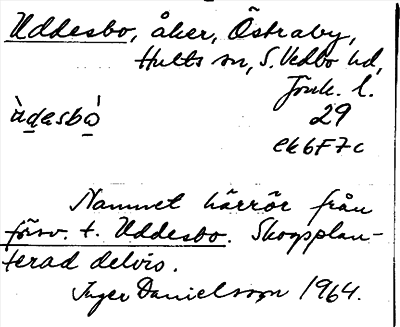 Uddesbo, åker, Östraby,
Hults sn, S. Vedbo hd,
Jönk. l.
ùdesbó 29
ek6F7c
Namnet härrör från
försv. t. Uddesbo. Skogsplan-
terad delvis.
Inger Danielsson 1964.